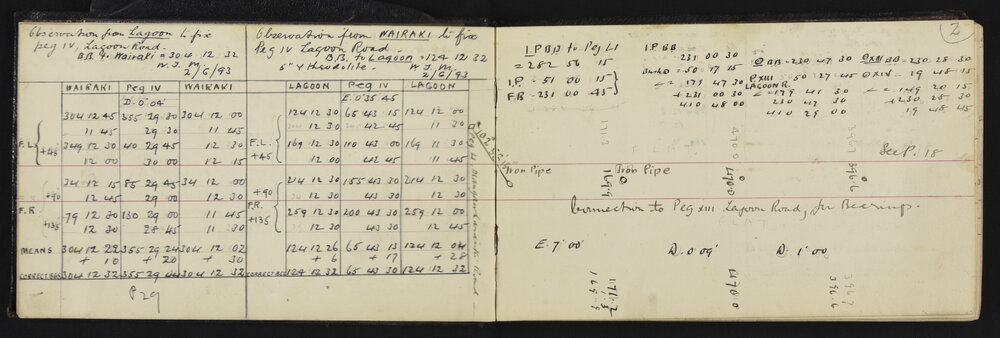 Observation from Lagoon to fix
Peg IV, Lagoon Road.
B.B. to Wairaki = 304 12 32
W.J.M.
2/6/93
WAIRAKI Peg IV WAIRAKI
D. 0° 04'
304 12 45 355 29 30 304 12 00
11 45 29 30 11 45
F.L. +45 349 12 30 40 29 45 12 30
12 00 30 00 12 15
+90 34 12 15 85 29 45 34 12 00
12 45 29 00 12 30
F.R. 79 12 30 130 29 00 11 45
+135 12 30 28 45 11 30
MEANS 304 12 22 355 29 24 304 12 02
+ 10 + 20 + 30
CORRECT BGS 304 12 32 355 29 44 304 12 32
P29
Observation from WAIRAKI to fix
Peg IV Lagoon Road.
B.B. to Lagoon = 124 12 32
5" Y Theodolite. W.J.M.
2/6/93
LAGOON Peg IV LAGOON
E. 0° 35' 45
124 12 30 65 43 15 124 12 00
12 30 42 45 11 30
F.L. +45 169 12 30 110 43 00 169 11 30
12 00 42 45 11 45
+90 214 12 30 155 43 30 214 12 30
F.R. 12 30 43 30 12 30
+135 259 12 30 200 43 30 259 12 00
12 30 43 30 12 45
124 12 26 65 43 13 124 12 04
+ 6 + 17 + 28
CORRECT BGS 124 12 32 65 43 30 124 12 32
2
I.P BB to Peg LI
= 282 56 15
I.P. - 51 00 15
F.B. - 231 00 45
I.P BB
231 00 30
= 50 17 15
∠ = 179 47 30
+ 231 00 30
410 48 00
BB - 230 47 30
P.XIII - 50 27 45
LAGOON R.
∠ = 179 41 30
230 47 30
410 29 00
XIII BB - 230 28 30
XIV - 19 48 15
∠ = 149 20 15
+ 230 28 30
19 48 45
See P. 18
1712
4300
3967
Iron Pipe
1699
Iron Pipe
4900
3966
Connection to Peg XIII Lagoon Road, for Bearings.
E. 7' 00"
D. 0° 09'
D. 1° 00'
4900
3967
3966